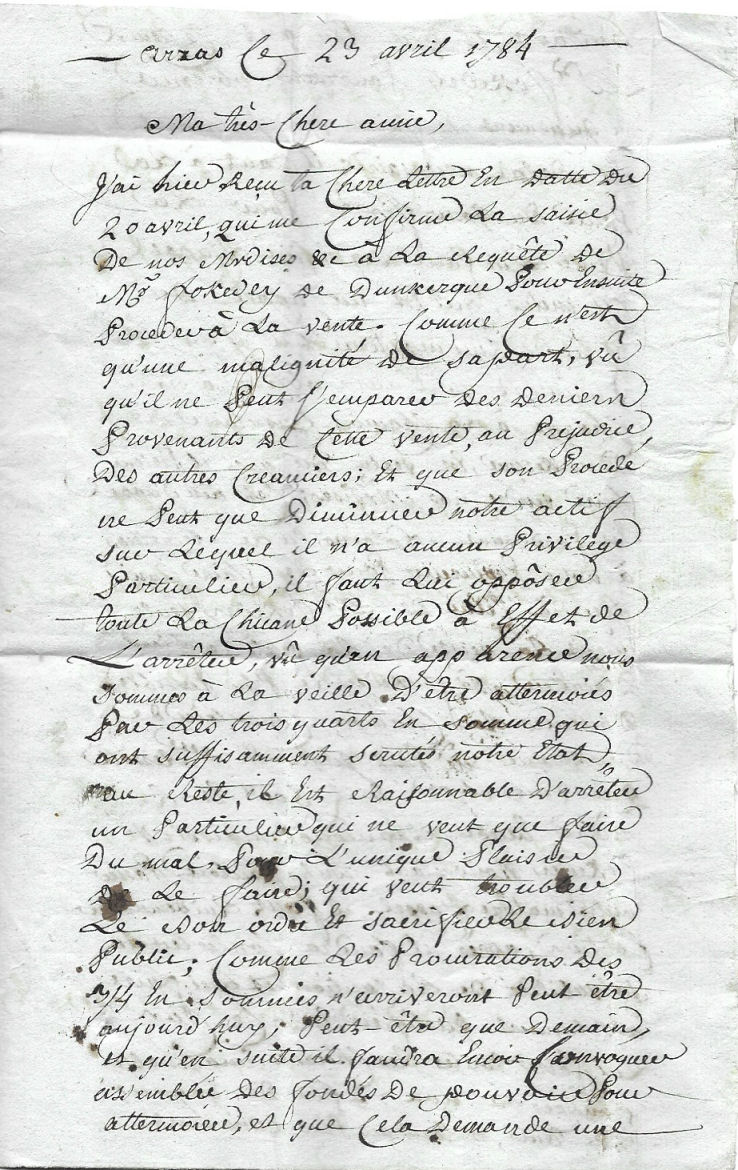 — arras Ce 23 avril 1784 —
Ma très-Chere amie,
J'ai hier Reçu ta Chere Lettre En datte Du
20 avril, qui me Confirme La saisie
De nos Mrdises &c à La Requête De
Mr. Jokevey de Dunkerque Pour Ensuite
Proceder à La vente. Comme Ce n'est
qu'une malignité De sa part, vû
qu'il ne Peut s'emparer Des Deniers
Provenants De Cette vente, au Prejudice
Des autres Creanciers; Et que son Procedé
ne Peut que Diminuer notre actif
sur Lequel il n'a aucun Privilege
Particulier, il faut Lui oppôser
toute La Chicane Possible à Effet de
L'arrêter, vû qu'en apparence nous
sommes à La veille D'être attermoiés
Par Les trois quarts En somme qui
ont suffisamment scrutés notre Etat,
au Reste, il Est Raisonnable D'arrêter
un Particulier qui ne veut que faire
Du mal, Pour L'unique Plaisir
De Le faire; qui veut troubler
Le Bon ordre Et sacrifier Le Bien
Public; Comme Les Procurations Des
3/4 En sommes n'arriveront Peut être
aujourd'huy, Peut-être que Demain,
et qu'en suite il faudra Encor Convoquer
assemblée Des fondés De pouvoir Pour
attermoier, et que Cela Demande une